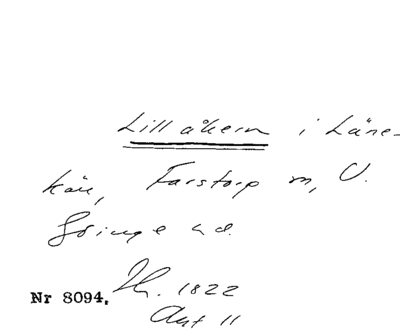 Lillåkern i Läne-
kärr, Farstorp m, V.
Göinge hd.
Nr 8094. H. 1822
Akt 11